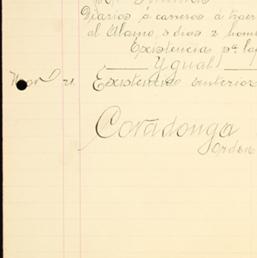 Diarios á carreros á traer
al Alamo, 3 dias 2 hom
Existencia pa la
Ygual
Nov 21 Existencia anterior
Covadonga
Orden